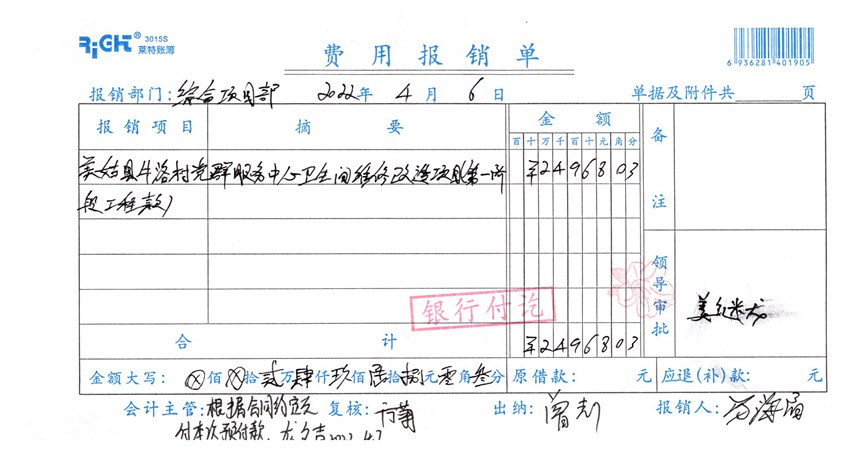 RiGHT® 3015S
莱特账簿
费用报销单
6 936281 401905
报销部门:综合项目部 2022年 4月 6日 单据及附件共 页
报销项目 摘要 金额 备注
百十万千百十元角分
美姑县牛洛村党群服务中心卫生间维修改造项目(第一阶 ¥2496803
段工程款)
银行付讫
领导审批
合计 ¥2496803
金额大写: ⊗佰⊗拾贰万肆仟玖佰陆拾捌元零角叁分 原借款: 元 应退(补)款: 元
会计主管:根据合同约定 复核: 出纳: 曾 报销人:
付本次预付款